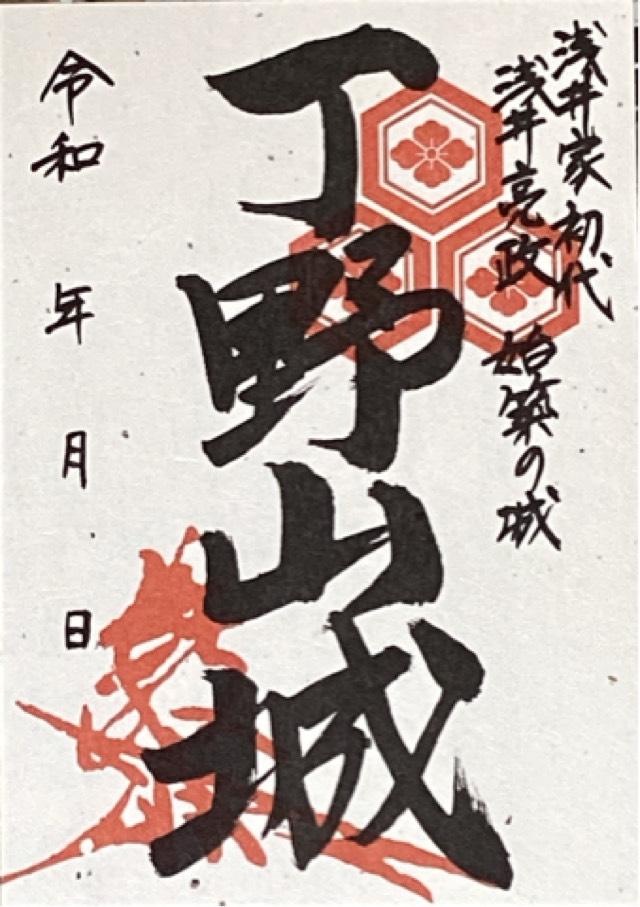 浅井家初代
浅井亮政 始築の城
丁野山城
令和 年 月 日